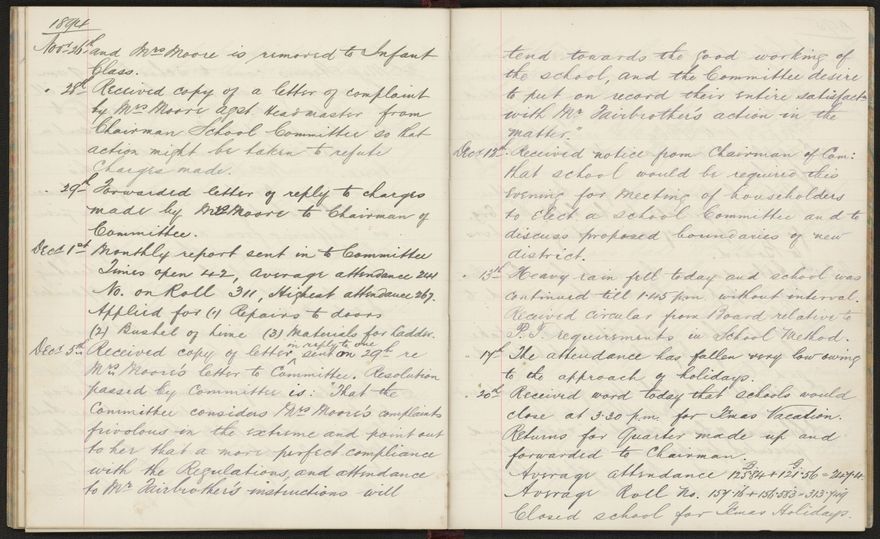 1894
Novr 26th and Mrs Moore is removed to Infant
Class.
" 28th Received copy of a letter of complaint
by Mrs Moore agst. Headmaster from
Chairman School Committee so that
action might be taken to refute
charges made.
" 29th Forwarded letter of reply to charges
made by Mrs Moore to Chairman of
Committee.
Decr 1st Monthly report sent in to Committee
Times open 42, average attendance 244
No. on Roll 311, Highest attendance 267.
Applied for (1) Repairs to doors
(2) Bushel of lime (3) Materials for ladder.
in reply to one
Decr 5th Received copy of letter, sent on 29th re
Mrs Moore's letter to Committee. Resolution
passed by Committee is: "That the
Committee considers Mrs Moore's complaints
frivolous in the extreme and point out
to her that a more perfect compliance
with the Regulations, and attendance
to Mr Fairbrother's instructions will
tend towards the good working of
the school, and the Committee desire
to put on record their entire satisfactn
with Mr Fairbrother's action in the
matter."
Decr 12th Received notice from Chairman of Com:
that school would be required this
evening for meeting of householders
to elect a school Committee and to
discuss proposed boundaries of new
district.
" 13th Heavy rain fell today and school was
continued till 1.45 p.m. without interval.
Received circular from Board relative to
P.T. requirements in School Method.
" 17th The attendance has fallen very low owing
to the approach of holidays.
" 20th Received word today that schools would
close at 3.30 p.m. for Xmas Vacation.
Returns for Quarter made up and
forwarded to Chairman.
B. G.
Average attendance 125.84 + 121.56 = 247.4.
Average Roll No. 157.16 + 156.583 = 313.749
Closed school for Xmas Holidays.